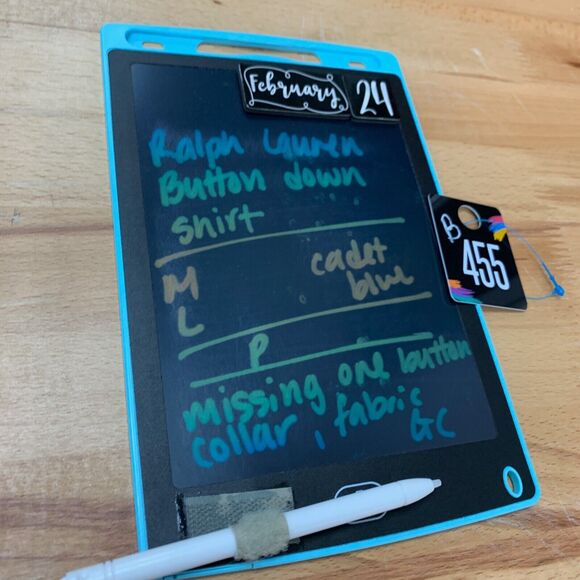 February 24
Ralph Lauren
Button down
shirt
B
455
M cadet
L blue
P
missing one button
collar, fabric
GC